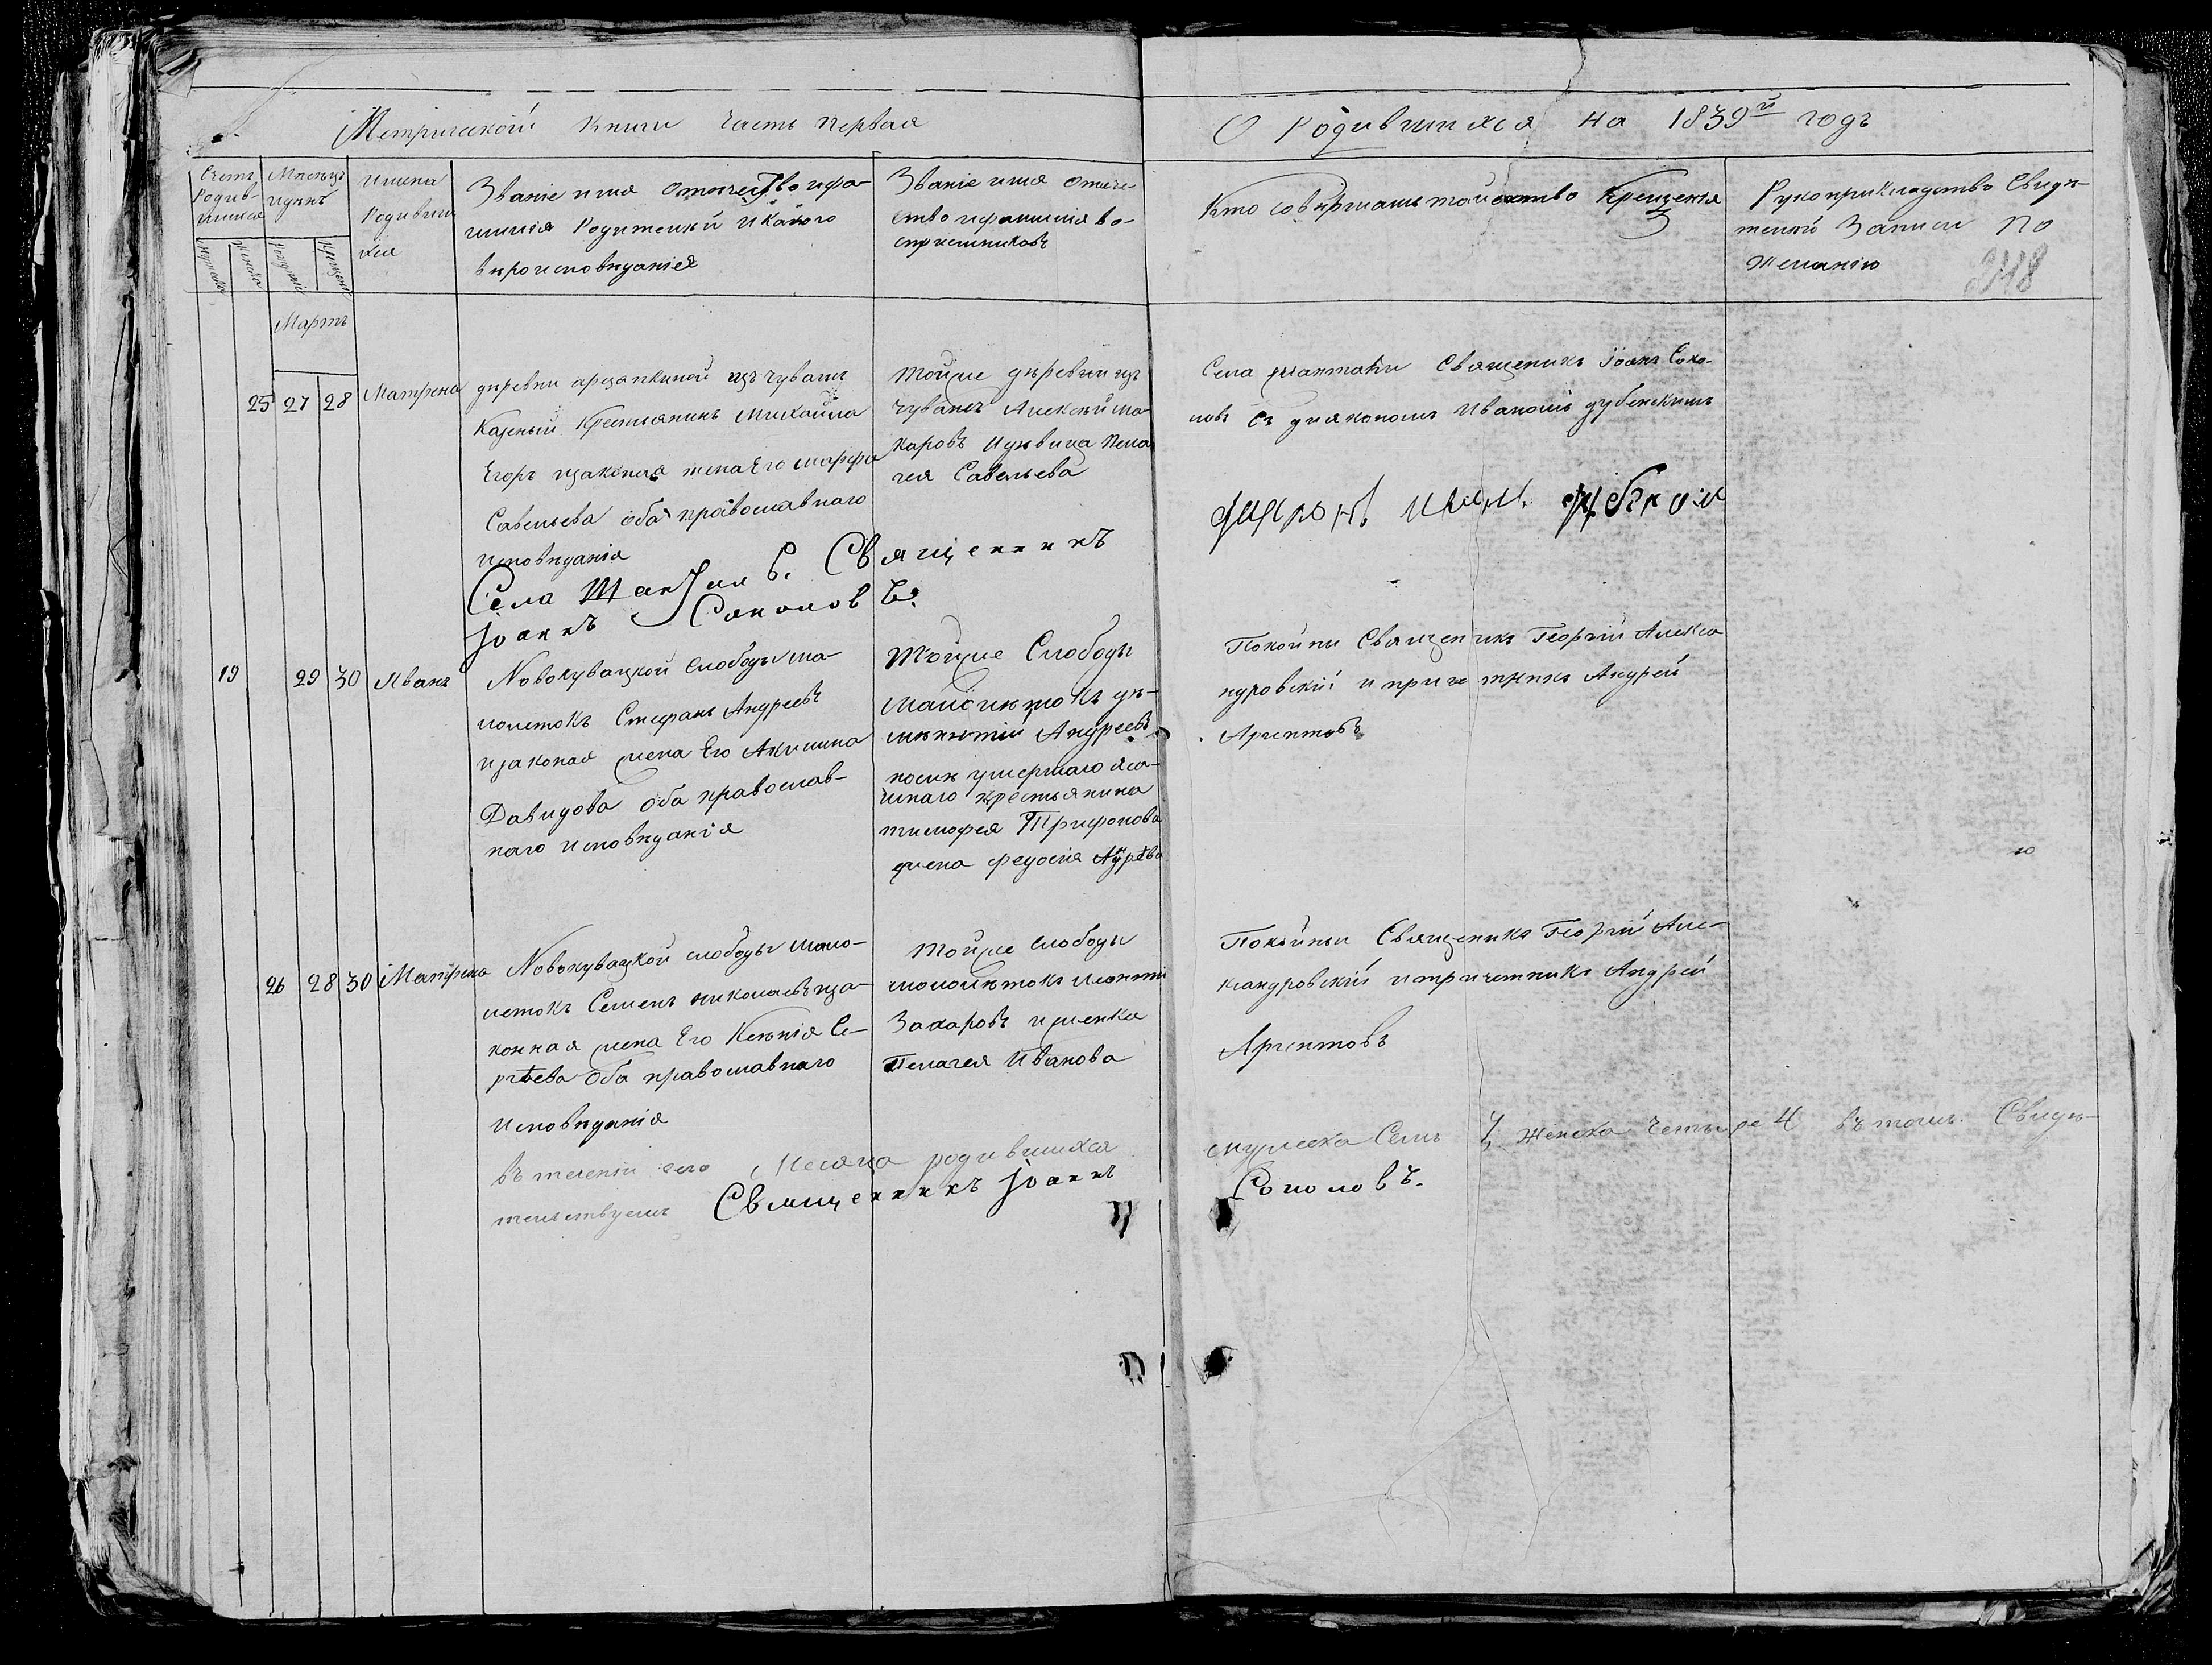 Метрической Книги Часть Первая
О Родившихся на 1839й годъ
Счетъ Родив-шихся
Месяцъ и день
Имена Родивших ся
Званіе имя отчество и фа-
милія Родителей и какого
вероисповеданія
Званіе имя отече-
ство и фамилія во-
спріемниковъ
Кто совершалъ таинство Крещенія
Рукоприкладство Свиде-
телей Записи по
желанію
248
Мартъ
25 27 28 Матрена
деревни изъ чувашъ
Казеный Крестьянинъ Михайла
Егоръ изаконая жена Его Марфа
Савельева оба православнаго
исповеданія
тойже деревни изъ
чувашъ Алексей Ма-
каровъ идевица Пела
гея Савельева
Села Шантали Священикъ Іоанъ Соко-
ловъ съ диякономъ Иваномъ дубенскимъ
Села Шантал Священникъ
Іоаннъ Соколовъ.
19 29 30 Иванъ
Новокувацкой Слободы ма-
лолетокъ Стефанъ Андреевъ
изаконая жена Его Акилина
Давидова оба православ-
наго исповеданія
Тойже Слободы
малолетокъ де-
ментій Андреевъ
умершаго яса-
шнаго крестьянина
тимофея Трифонова
жена федосія
Покойни Священикъ Георгій Алекса
ндровскій и причетникъ Андрей
Аристовъ
26 28 30 Матрена
Новокувацкой слободы мало-
летокъ Семенъ николаевъ иза-
конная жена Его Ксенія Се-
ргѣева оба православнаго
исповеданія
Тойже слободы
малолетокъ Леонтій
Захаровъ и женка
Пелагея Иванова
Покойный Священикъ Георгій Але-
ксандровскій и причетникъ Андрей
Аристовъ
въ теченіи сего Месяца родившихся
мужеска Семь 7, женска четыре 4 въ томъ Свиде-
тельствуемъ Священникъ Іоаннъ
Соколовъ.